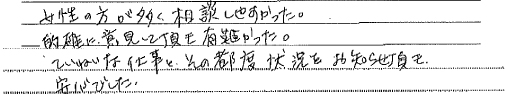 女性の方が多く相談しやすかった。
的確に意見して頂き有難かった。
ていねいな仕事と、その都度状況をお知らせ頂き
安心でした。